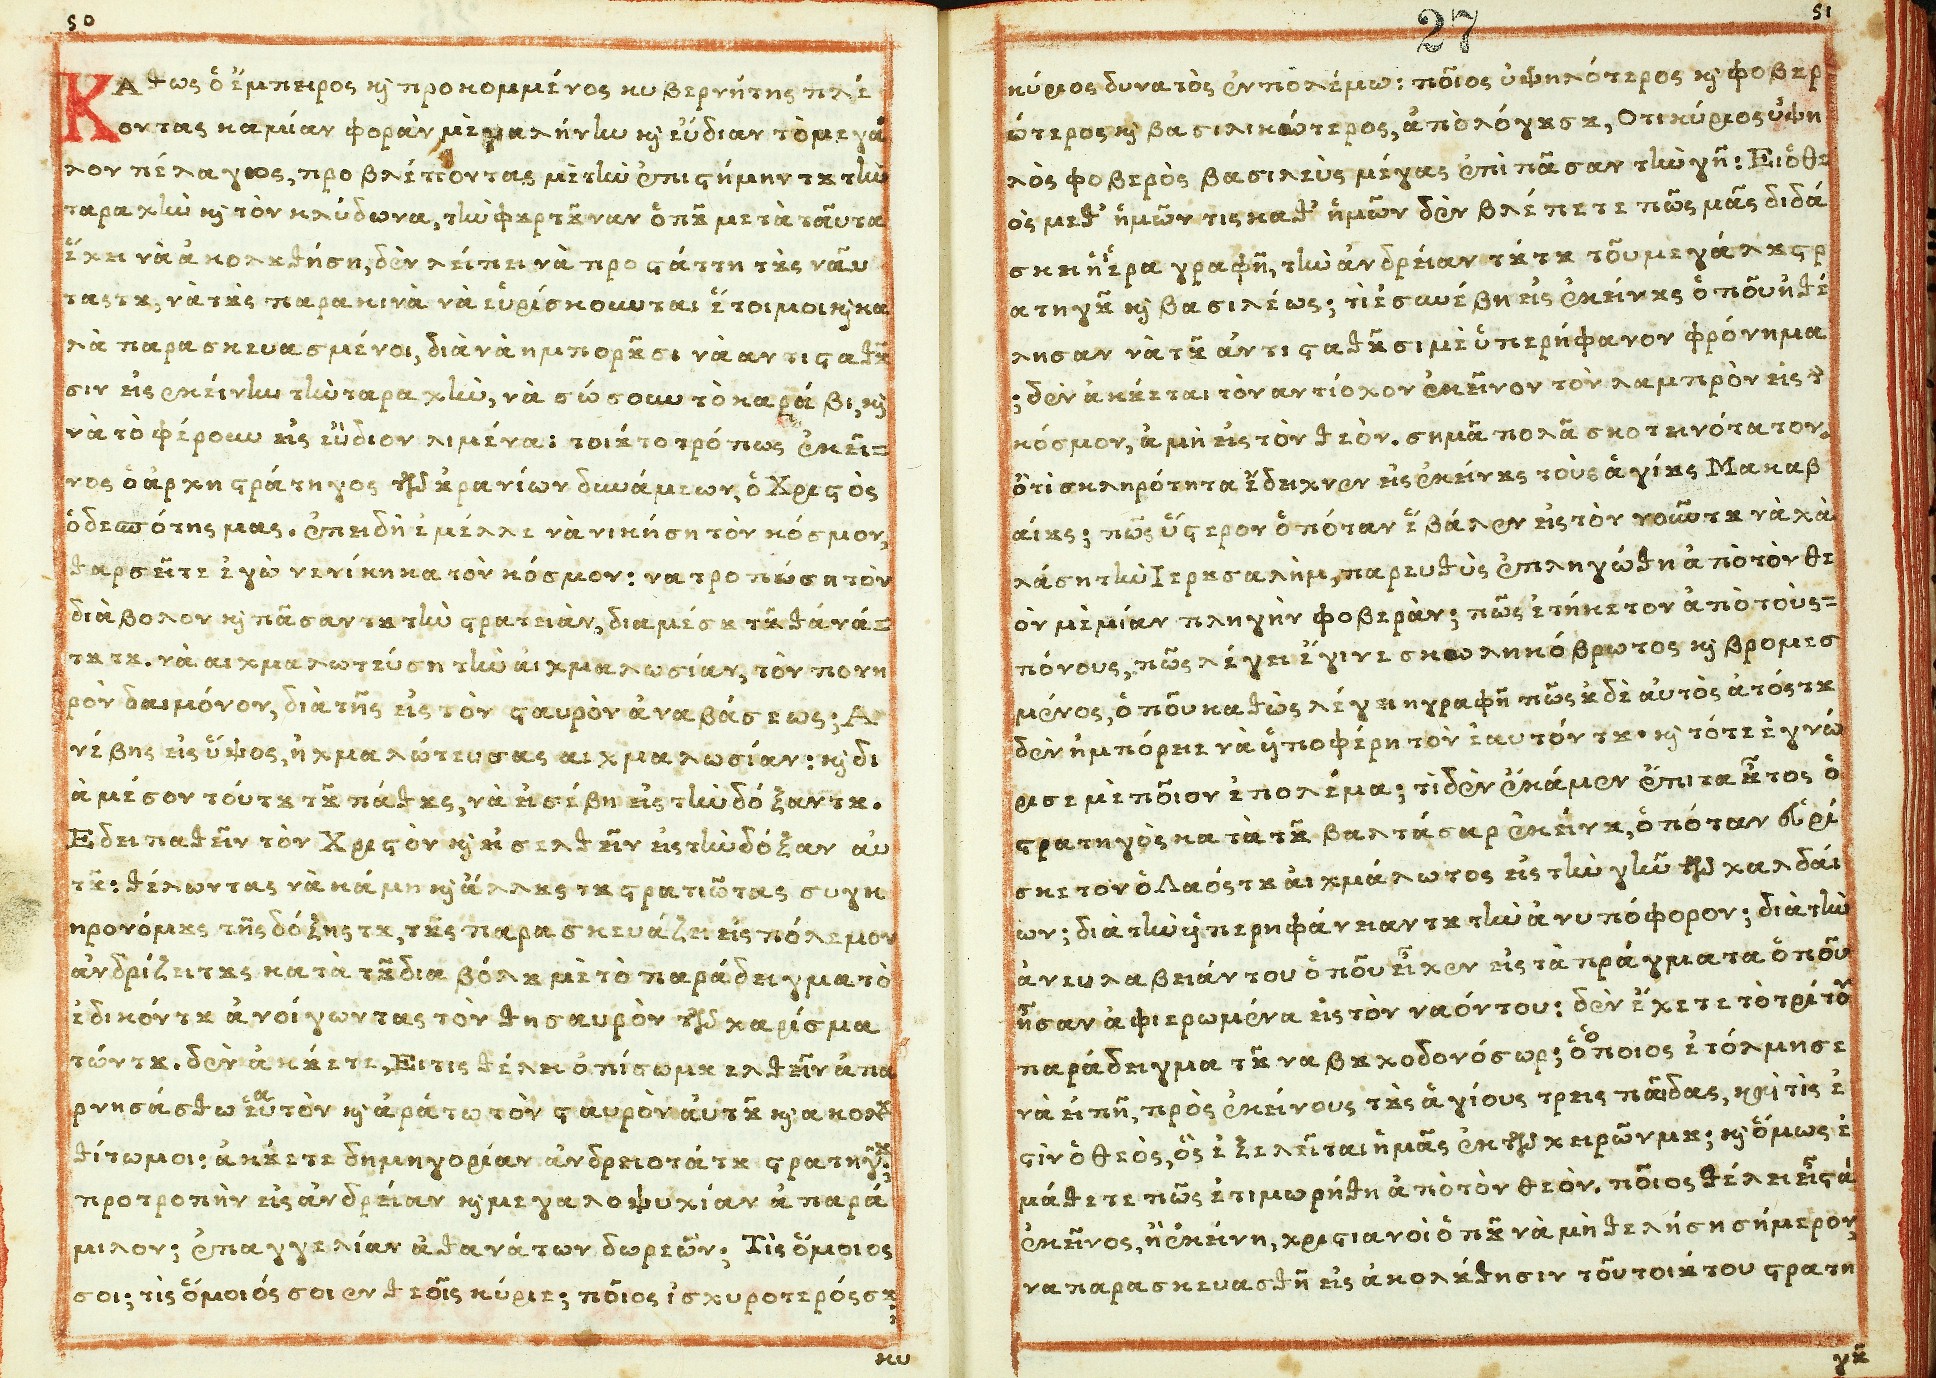 50
Καθως ὁ ἔμπειρος κ̀ προκομμένος κυβερνήτης πλέ
οντας καμίαν φορὰν μὲ γαλήνην κ̀ εὔδιαν τὸ μεγά
λον πέλαγος, προβλέποντας μὲ τὴν ἐπιστήμην τȣ τὴν
ταραχὴν κ̀ τὸν κλύδωνα, τὴν φȣρτȣ͂ναν ὁπȣ͂ μετὰ ταῦτα
ἔχει νὰ ἀκολȣθήση, δὲν λείπει νὰ προστάττη τȣς ναύ
τας τȣ, νὰ τȣ̀ς παρακινὰ νὰ εὑρίσκουνται ἕτοιμοι κ̀ κα
λὰ παρασκευασμένοι, διὰ νὰ ημπορȣ͂σι νὰ αντισταθȣ͂
σιν εἰς ἐκείνην τὴν ταραχὴν, νὰ σώσουν τὸ καράβι, κ̀
νὰ τὸ φέρουν εἰς εὔδιον λιμένα: τοιȣ́το τρόπως ἐκεῖ=
νος ὁ ἀρχηστράτηγος τῶν ȣ̓ρανίων δυνάμεων, ὁ Χριστὸς
ὁ δεσπότης μας. ἐπειδὴ ἐμέλλε νὰ νικήση τὸν κόσμον,
θαρσεῖτε ἐγὼ νενίκηκα τὸν κόσμον: να τροπώση τὸν
διὰβολον κ̀ πᾶσαν τȣ τὴν στρατειὰν, δια μέσȣ τȣ͂ θάνά=
τȣ τȣ. νὰ αιχμαλωτεύση τὴν ἀιχμαλωσίαν, τὸν πονη
ρὸν δαιμόνον, διὰ τῆς εἰς τὸν σταυρὸν ἀναβάσεως; Α
νέβης εἰς ὕψος, ἠχμαλώτευσας αιχμαλωσίαν: κ̀ δι
ὰ μέσον τούτȣ τȣ͂ πάθȣς, νὰ εἰσέβη εἰς τὴν δόξαν τȣ.
Εδει παθεῖν τὸν Χριστὸν κ̀ εἰσελθεῖν εἰς τὴν δόξαν αυ
τȣ͂: θέλωντας νὰ κάμη κ̀ ἄλλȣς τȣ στρατιῶτας συγκ
ηρονόμȣς τῆς δόξης τȣ, τȣ̀ς παρασκευάζει εἰς πόλεμον
ἀνδρίζει τȣς κατὰ τȣ͂ διαβόλȣ μὲ τὸ παράδειγμα τὸ
ἐδικόν τȣ ἀνοίγωντας τὸν θησαυρὸν τῶν χαρίσμα
τών τȣ. δὲν ἀκȣ́ετε, Ει τις θέλει ὀπίσω μȣ ελθεῖν ἀπα
ρνησάσθω ἑαυτὸν κ̀ ἀράτω τὸν σταυρὸν ἀυτȣ͂ κ̀ ακολȣ
θίτω μοι: ἀκȣ́ετε δημηγορίαν ἀνδρειοτάτȣ στρατηγȣ͂;
προτροπὴν εἰς ἀνδρείαν κ̀ μεγαλοψυχίαν ἀπαρά
μιλον; ἐπαγγελίαν ἀθανάτων δωρεῶν; Τὶς ὅμοιος
σοι; τὶς ὅμοιός σοι ἐν θεοῖς κύριε; ποῖος ἰσχυροτερός σȣ;
κυ
27
51
κύριος δυνατὸς ἐν πολέμω: ποῖος ὑψηλότερος κ̀ φοβερ=
ώτερος κ̀ βασιλικώτερος, ἀπὸ λόγȣ σȣ, Οτι κύριος ὕψη
λὸς φοβερὸς βασιλεὺς μέγας ἐπὶ πᾶσαν τὴν γῆ: Ει ὁ θε
ὸς μεθ' ἡμῶν τις καθ' ἡμῶν δὲν βλέπετε πῶς μᾶς διδά
σκει ἡ ἱερα γραφῆ, τὴν ἀνδρείαν τȣ́τȣ τοῦ μεγάλȣ στρ
ατηγȣ͂ κ̀ βασιλέως; τὶ ἐσυνέβη εἰς ἐκείνȣς ὁποῦ ἠθέ
λησαν νὰ τȣ͂ ἀντισταθȣ͂σι μὲ ὑπερήφανον φρόνημα
; δὲν ἀκȣ́εται τὸν αντίοχον ἐκεῖνον τὸν λαμπρὸν εἰς τ
κόσμον, ἀμὴ εἰς τὸν θεὸν. σημᾶ πολᾶ σκοτεινότατον.
ὅτὶ σκληρότητα ἔδειχνεν εἰς ἐκείνȣς τοὺς ἁγίȣς Μακαβ
αίȣς; πῶς ὕστερον ὁπόταν ἔβάλεν εἰς τὸν νοῦν τȣ νὰ χὰ
λάση τὴν Ιερȣσαλὴμ, παρευθὺς ἐπληγώθη ἀπὸ τὸν θε
ὸν μὲ μίαν πληγὴν φοβερὰν; πῶς ἐτήκετον ἀπὸ τοὺς=
πόνους, πῶς λέγει ἔγινε σκωληκόβρωτος κ̀ βρομεσ
μένος, ὁποῦ καθὼς λέγει η γραφῆ πῶς ȣ̓δὲ ἀυτὸς ἀτός τȣ
δὲν ἠμπόρειε νὰ ὑποφέρη τὸν ἑαυτόν τȣ. κ̀ τότε ἐγνώ
ρισε μὲ ποῖον ἐπολέμα; τὶ δὲν ἔκάμεν ἔπιτα ȣ̔͂τος ὁ
στρατηγὸς κατὰ τȣ͂ βαλτάσαρ ἐκείνȣ, ὁπόταν εὑρί
σκετον ὁ Λαός τȣ ἀιχμάλωτος εἰς τὴν γῆν τῶν χαλδάι
ων; διὰ τὴν ὑπερηφάνειαν τȣ τὴν ἀνυπόφορον; διὰ τὴν
ἀνευλαβειάν του ὁποῦ εἶχεν εἰς τὰ πράγματα ὁποῦ
ἦσαν ἀφιερωμένα εἰς τὸν ναόν του: δὲν ἔχετε τὸ τρίτον
παράδειγμα τȣ͂ ναβȣχοδονόσωρ; ὁ ὅποιος ἐτόλμησε
νὰ εἰπῆ, πρὸς ἐκείνους τȣ̀ς ἁγίους τρεις παῖδας, κ̀ τὶς ἐ
στὶν ὁ θεὸς, ὃς ἐξελεῖται ἡμᾶς ἐκ τῶν χειρῶν μȣ; κ̀ ὅμως ἐ
μάθετε πῶς ἐτιμωρήθη ἀπὸ τὸν θεὸν. ποῖος θέλει εἶσται
ἐκεῖνος, ἢ ἐκείνη, χριστιανοὶ ὁπȣ͂ νὰ μὴ θελήση σήμερον,
να παρασκευασθῆ εἰς ἀκολȣ́θησιν τοῦ τοιȣ́του στρατη
γȣ͂